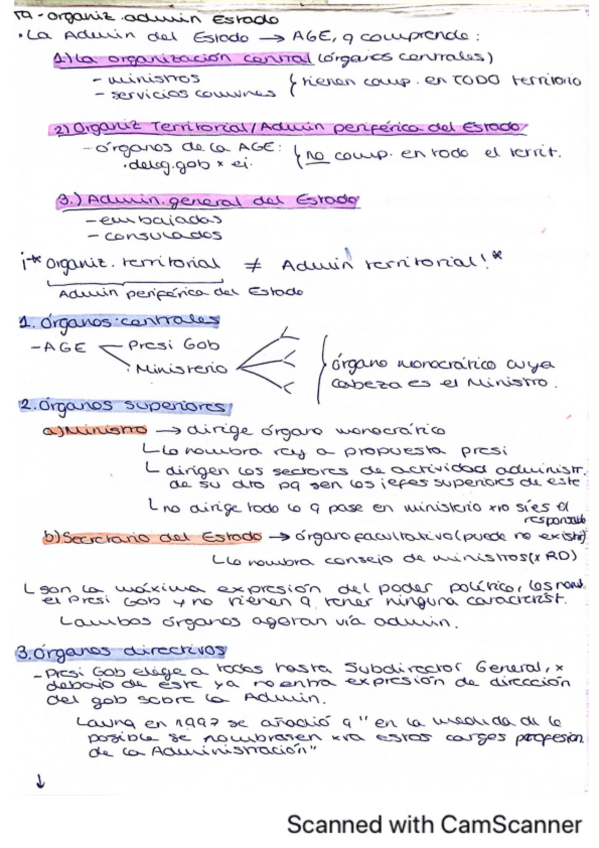 T9 - organiz. admin Estado
· La Admin del Estado → AGE, q comprende:
1) La organización central (órganos centrales)
- ministros
- servicios comunes
tienen comp. en TODO territorio
2) Organiz Territorial / Admin periférica del Estado
- órganos de la AGE:
· deleg. gob x ej.
no comp. en todo el territ.
3.) Admin. general del Estado
- embajadas
- consulados
¡* Organiz. territorial ≠ Admin territorial! *
Admin periférica del Estado
1. Órganos centrales
- AGE
Presi Gob
· Ministerio
órgano monocrático cuya
cabeza es el Ministro.
2. Órganos superiores
a) Ministro → dirige órgano monocrático
lo nombra rey a propuesta presi
dirigen los sectores de actividad administr.
de su dto pq son los jefes superiores de este
no dirige todo lo q pase en ministerio xro sí es el
responsab
b) Secretario del Estado → órgano facultativo (puede no existir)
lo nombra consejo de ministros (x RD)
son la máxima expresión del poder político, los nom.
el Presi Gob y no tienen q tener ninguna caracterist.
ambos órganos agotan vía admin.
3. Órganos directivos
- Presi Gob elige a todos hasta Subdirector General, x
debajo de este ya no entra expresión de dirección
del gob sobre la Admin.
en 1997 se añadió q "en la medida de lo
posible se nombrasen xra estos cargos profesion
de la Administración"
↓
Scanned with CamScanner